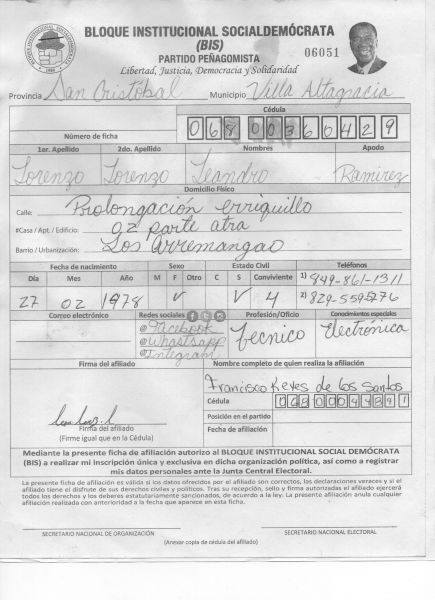 BLOQUE INSTITUCIONAL SOCIALDEMÓCRATA
(BIS)
PARTIDO PEÑAGOMISTA
06051
Libertad, Justicia, Democracia y Solidaridad
Provincia San Cristobal Municipio Villa Altagracia
Cédula
Número de ficha 068 0036042 9
1er. Apellido 2do. Apellido Nombres Apodo
Lorenzo Lorenzo Leandro Ramirez
Domicilio Físico
Calle: Prolongación enriquillo
#Casa / Apt. / Edificio: 92 parte atra
Barrio / Urbanización: Los Arremangao
Fecha de nacimiento Sexo Estado Civil Teléfonos
Día Mes Año M F Otro C S Conviviente 1) 849-861-1311
27 02 1978 4 2) 829-559-5276
Correo electrónico Redes sociales Profesión/Oficio Conocimientos especiales
@Facebook
@Whatsapp
@Integram
tecnico Electrónica
Firma del afiliado Nombre completo de quien realiza la afiliación
Francisco Reyes de los Santos
Cédula
Posición en el partido
Fecha de afiliación
Firma del afiliado
(Firme igual que en la Cédula)
Mediante la presente ficha de afiliación autorizo al BLOQUE INSTITUCIONAL SOCIAL DEMÓCRATA
(BIS) a realizar mi inscripción única y exclusiva en dicha organización política, así como a registrar
mis datos personales ante la Junta Central Electoral.
La presente ficha de afiliación es válida si los datos ofrecidos por el afiliado son correctos, las declaraciones veraces y si el
afiliado tiene el disfrute de sus derechos civiles y políticos. Tras su recepción, sello y firma autorizadas el afiliado ejercerá
todos los derechos y los deberes estatutariamente sancionados, de acuerdo a la ley. La presente afiliación anula cualquier
afiliación realizada con anterioridad a la fecha que aparece en esta ficha.
SECRETARIO NACIONAL DE ORGANIZACIÓN SECRETARIO NACIONAL ELECTORAL
(Anexar copia de cédula del afiliado)